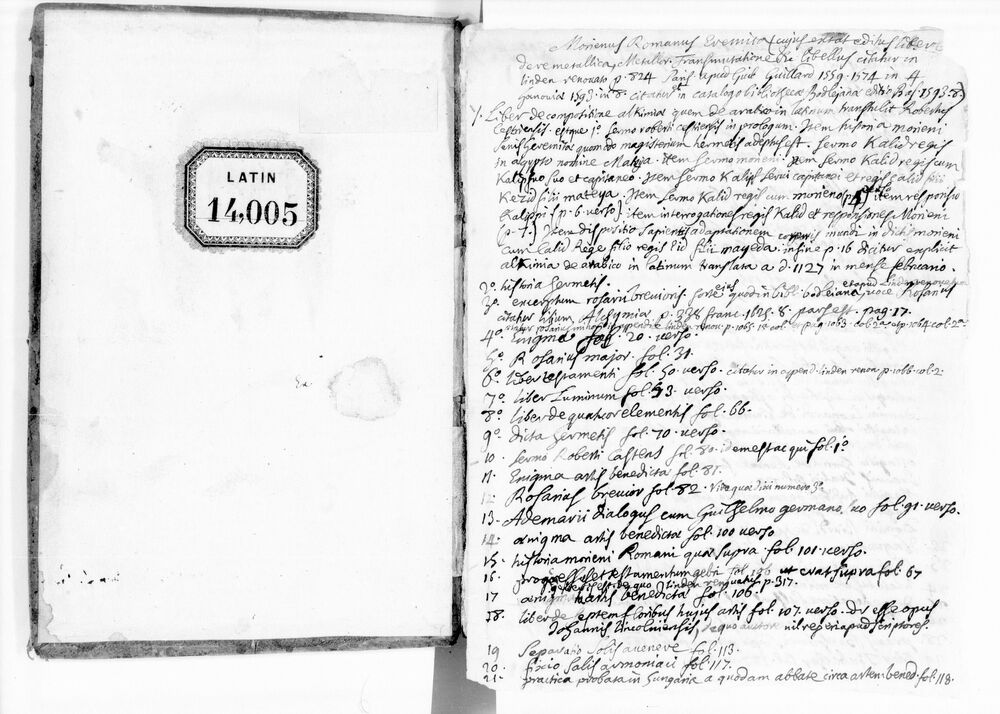 LATIN
14,005
Morienus Romanus Eremita (cujus extat editus liber
de re metallica, Metallor. Transmutatione libellus citatur in
linden renovato p. 824 Paris apud Guil. Guillard 1559. 1574 in 4
hanoviæ 1593. in 8. citatur in catalogo bibliothecæ Bodlejanæ editio
1. Liber de compositione alkimiæ quem de arabico in latinum transtulit Robertus
Castrensis. estque 1º. sermo roberti castrensis in prologum. Item historia morieni
senis heremitæ quomodo magisterium hermetis adeptus est. sermo Kalid regis
in ægypto nomine Item sermo morieni. Item sermo Kalid regis cum
Kalip suo et capitaneo. Item sermo Kalip servi capitanei et regis calid filii
Kezid filii mateya. Item sermo Kalid regis cum morieno item responsio
Kalippi (p. 6. verso) item interrogationes regis Kalid et responsiones Morieni
(p. 7.) Item dispositio sapientis adaptationem corporis mundi in dictis morieni
cum Calid Rege filio regis filii mayeda. in fine p. 16 dicitur explicit
alkimia de arabico in latinum translata a d. 1127 in mense februario.
2º. historia hermetis.
3º. excerptum rosarii brevioris. forte ejus quod in bibl. bodleiana, et apud Linden renovatum voce Rosarius
citatur Alchymia p. 338 franc. 1625. 8. pars est. pag. 17.
citatur rosarius minor in appendice linden renov. p. 1065. 1a col. et pag. 1063. col. 2a. atp. 1064 col. 2a.
4º. Enigma fol. 20. verso.
5º. Rosarius major. fol. 31.
6º. liber testamenti fol. 50. verso. citatur in append. linden renov. p. 1066. col. 2.
7º. liber Luminum fol. 53. verso.
8º. liber de quatuor elementis fol. 66.
9º. dicta hermetis fol. 70. verso.
10. sermo Roberti Castrens. fol. 80. idem est ac qui fol. 1º
11. Enigma artis benedictæ fol. 81.
12. Rosarius brevior fol. 82. Vide quæ dixi numero 3º
13. Ademarii dialogus cum Guilhelmo germano suo fol. 91. verso.
14. ænigma artis benedictæ fol. 100 verso
15. historia morieni Romani quæ supra. fol. 101. verso.
16. et testamentum gebri fol. ut erat supra fol. 67
de quo linden renovatus p. 317.
17 ænigma artis benedictæ fol. 106.
18. liber de septem floribus hujus artis fol. 107. verso. dr esse opus
Johannis Lincolniensis, de quo auctore nil reperi apud scriptores.
19 Separatio solis a venere fol. 113.
20. salis armoniaci fol. 117.
21. practica probata in hungaria a quodam abbate circa artem bened. fol. 118.